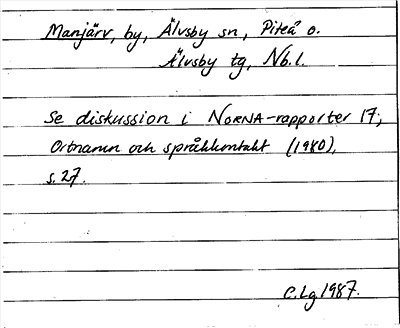 Manjärv, by, Älvsby sn, Piteå o.
Älvsby tg, Nb.l.
Se diskussion i NORNA-rapporter 17,
Ortnamn och språkkontakt (1980),
s. 27.
C.Lg 1987.